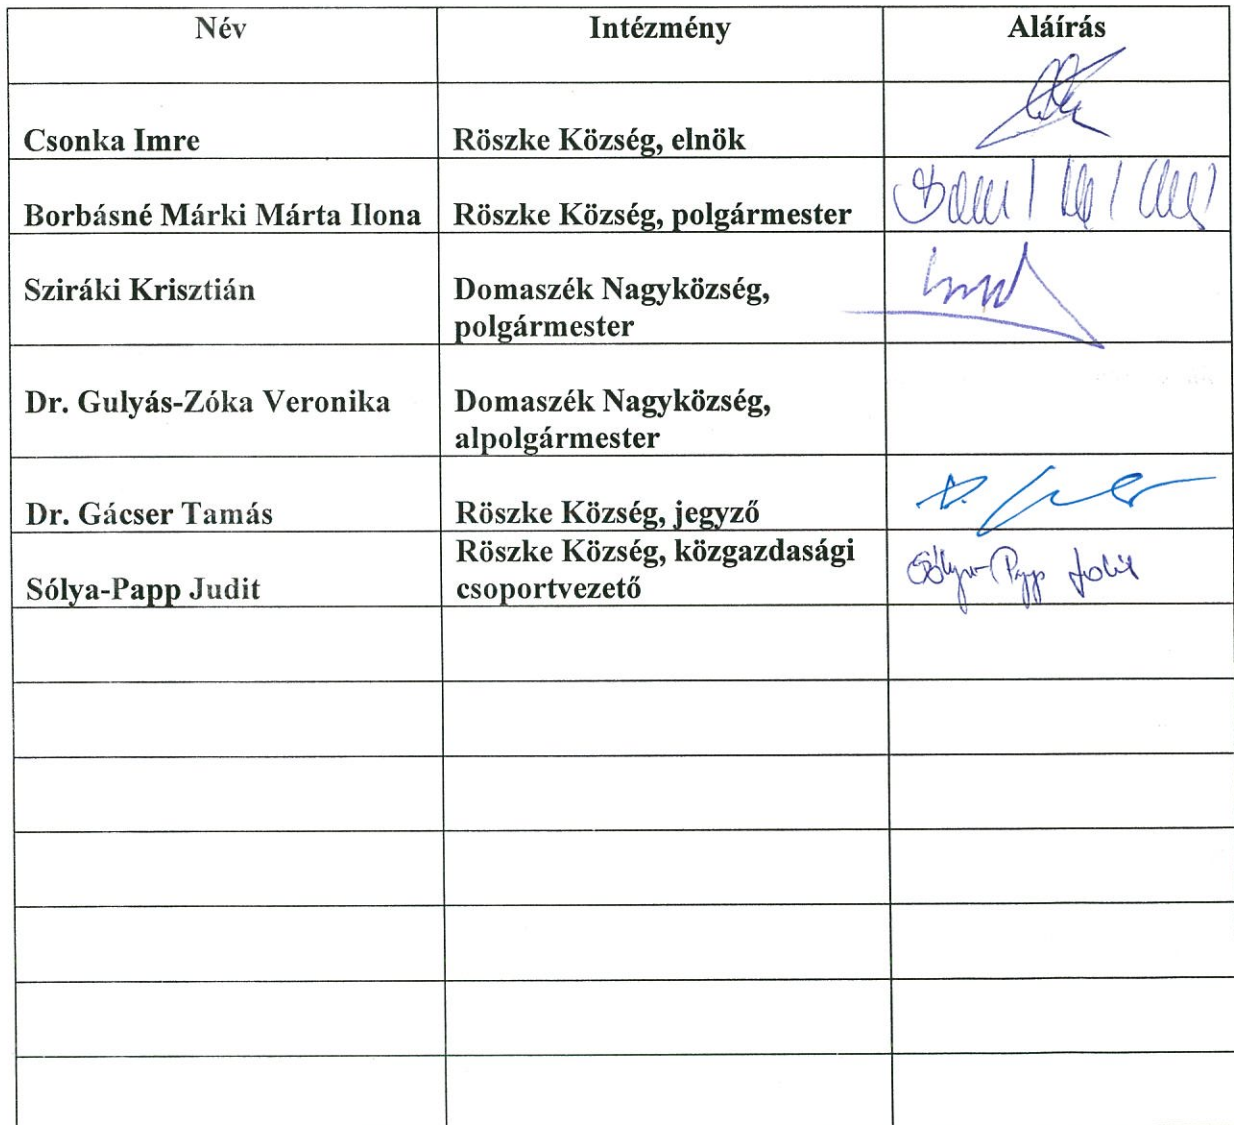 Név Intézmény Aláírás
Csonka Imre Röszke Község, elnök
Borbásné Márki Márta Ilona Röszke Község, polgármester
Sziráki Krisztián Domaszék Nagyközség,
polgármester
Dr. Gulyás-Zóka Veronika Domaszék Nagyközség,
alpolgármester
Dr. Gácser Tamás Röszke Község, jegyző
Röszke Község, közgazdasági
Sólya-Papp Judit csoportvezető Sólya-Papp Judit